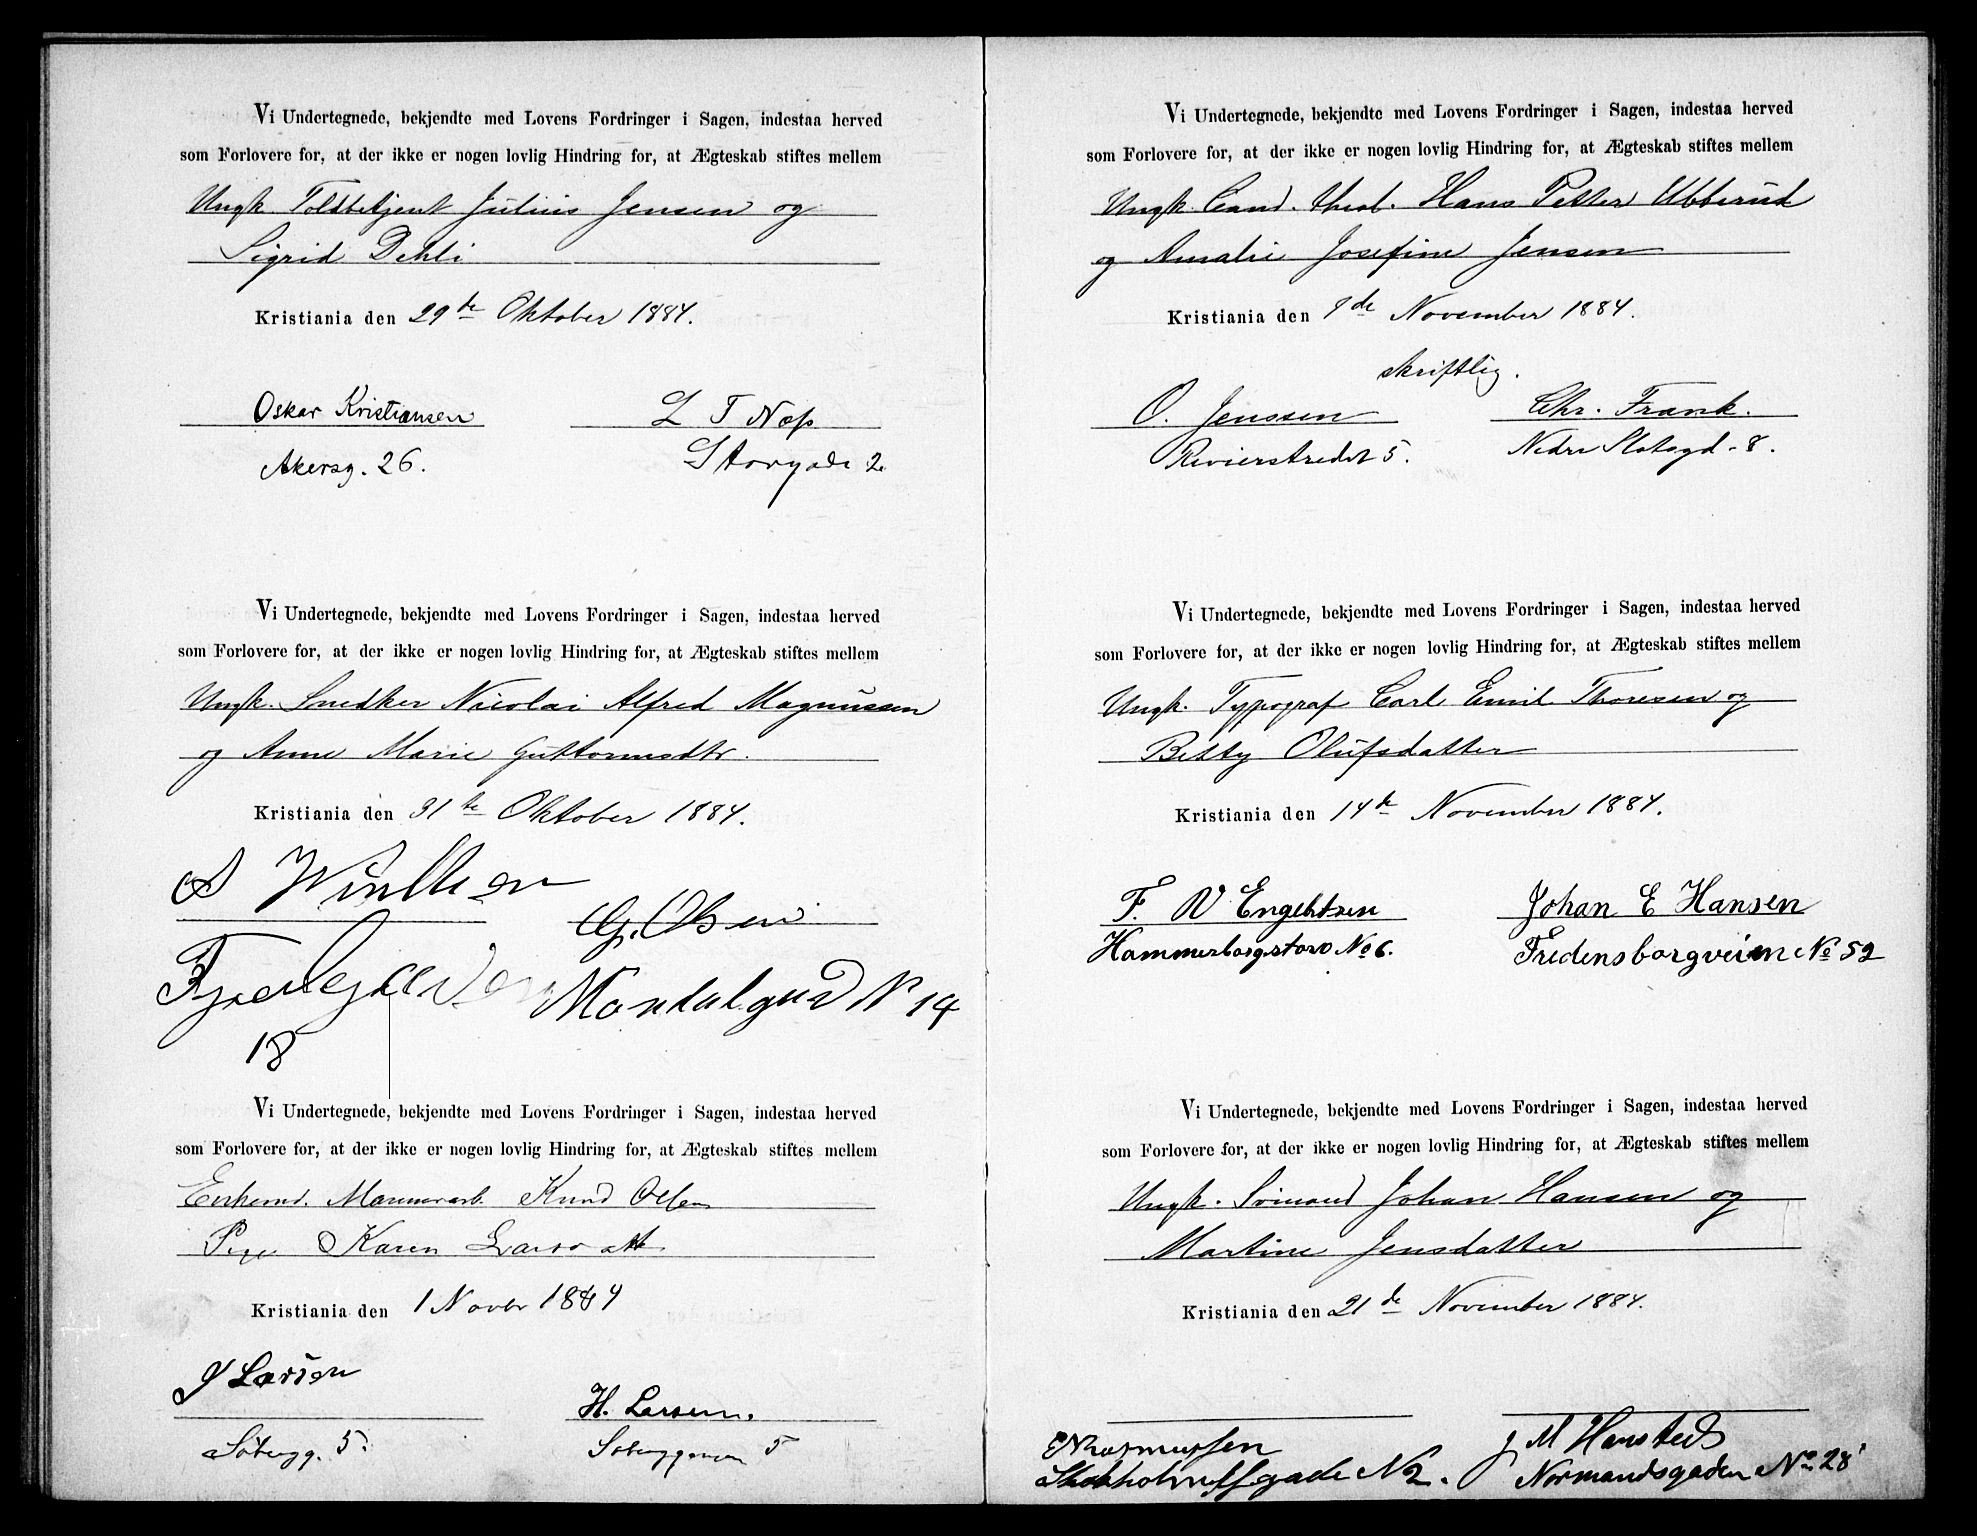 Vi Undertegnede, bekjendte med Lovens Fordringer i Sagen, indestaa herved
som Forlovere for, at der ikke er nogen lovlig Hindring for, at Ægteskab stiftes mellem
Ungk. Toldbetjent Julius Jensen og
Sigrid Dehli
Kristiania den 29de Oktober 1884.
Oskar Kristiansen
Akersg. 26.
L T Næss
Storgade 2
Vi Undertegnede, bekjendte med Lovens Fordringer i Sagen, indestaa herved
som Forlovere for, at der ikke er nogen lovlig Hindring for, at Ægteskab stiftes mellem
Ungk. Snedker Nicolai Alfred Magnussen
og Anne Marie Guttormsdtr.
Kristiania den 31te Oktober 1884.
A Winther
18
G. Olsen
Mandalgad N 14
Vi Undertegnede, bekjendte med Lovens Fordringer i Sagen, indestaa herved
som Forlovere for, at der ikke er nogen lovlig Hindring for, at Ægteskab stiftes mellem
Enkemd. Marmorarb. Knud Olsen
Pige Karen Larsdatt.
Kristiania den 1 Novbr 1884
J Larsen
5.
H. Larsen.
5
Vi Undertegnede, bekjendte med Lovens Fordringer i Sagen, indestaa herved
som Forlovere for, at der ikke er nogen lovlig Hindring for, at Ægteskab stiftes mellem
Ungk. Cand. theol. Hans Petter Ubberud
og Amalie Josefine Jensen
Kristiania den 9de November 1884.
skriftlig.
O. Jenssen
Revierstredet 5.
Chr. Frank.
Nedre Slotsgd. 8.
Vi Undertegnede, bekjendte med Lovens Fordringer i Sagen, indestaa herved
som Forlovere for, at der ikke er nogen lovlig Hindring for, at Ægteskab stiftes mellem
Ungk. Typograf Carl Emil Thoresen og
Betty Olufsdatter
Kristiania den 14de November 1884.
F. W Engebtsen
Hammerborgstorv No 6.
Johan E Hansen
Fredensborgveien No 52
Vi Undertegnede, bekjendte med Lovens Fordringer i Sagen, indestaa herved
som Forlovere for, at der ikke er nogen lovlig Hindring for, at Ægteskab stiftes mellem
Ungk. Sømand Johan Hansen og
Martine Jensdatter
Kristiania den 21de November 1884.
Rasmussen
Stokholmsgade N 2.
J M Hansteds
Normandsgaden No 28